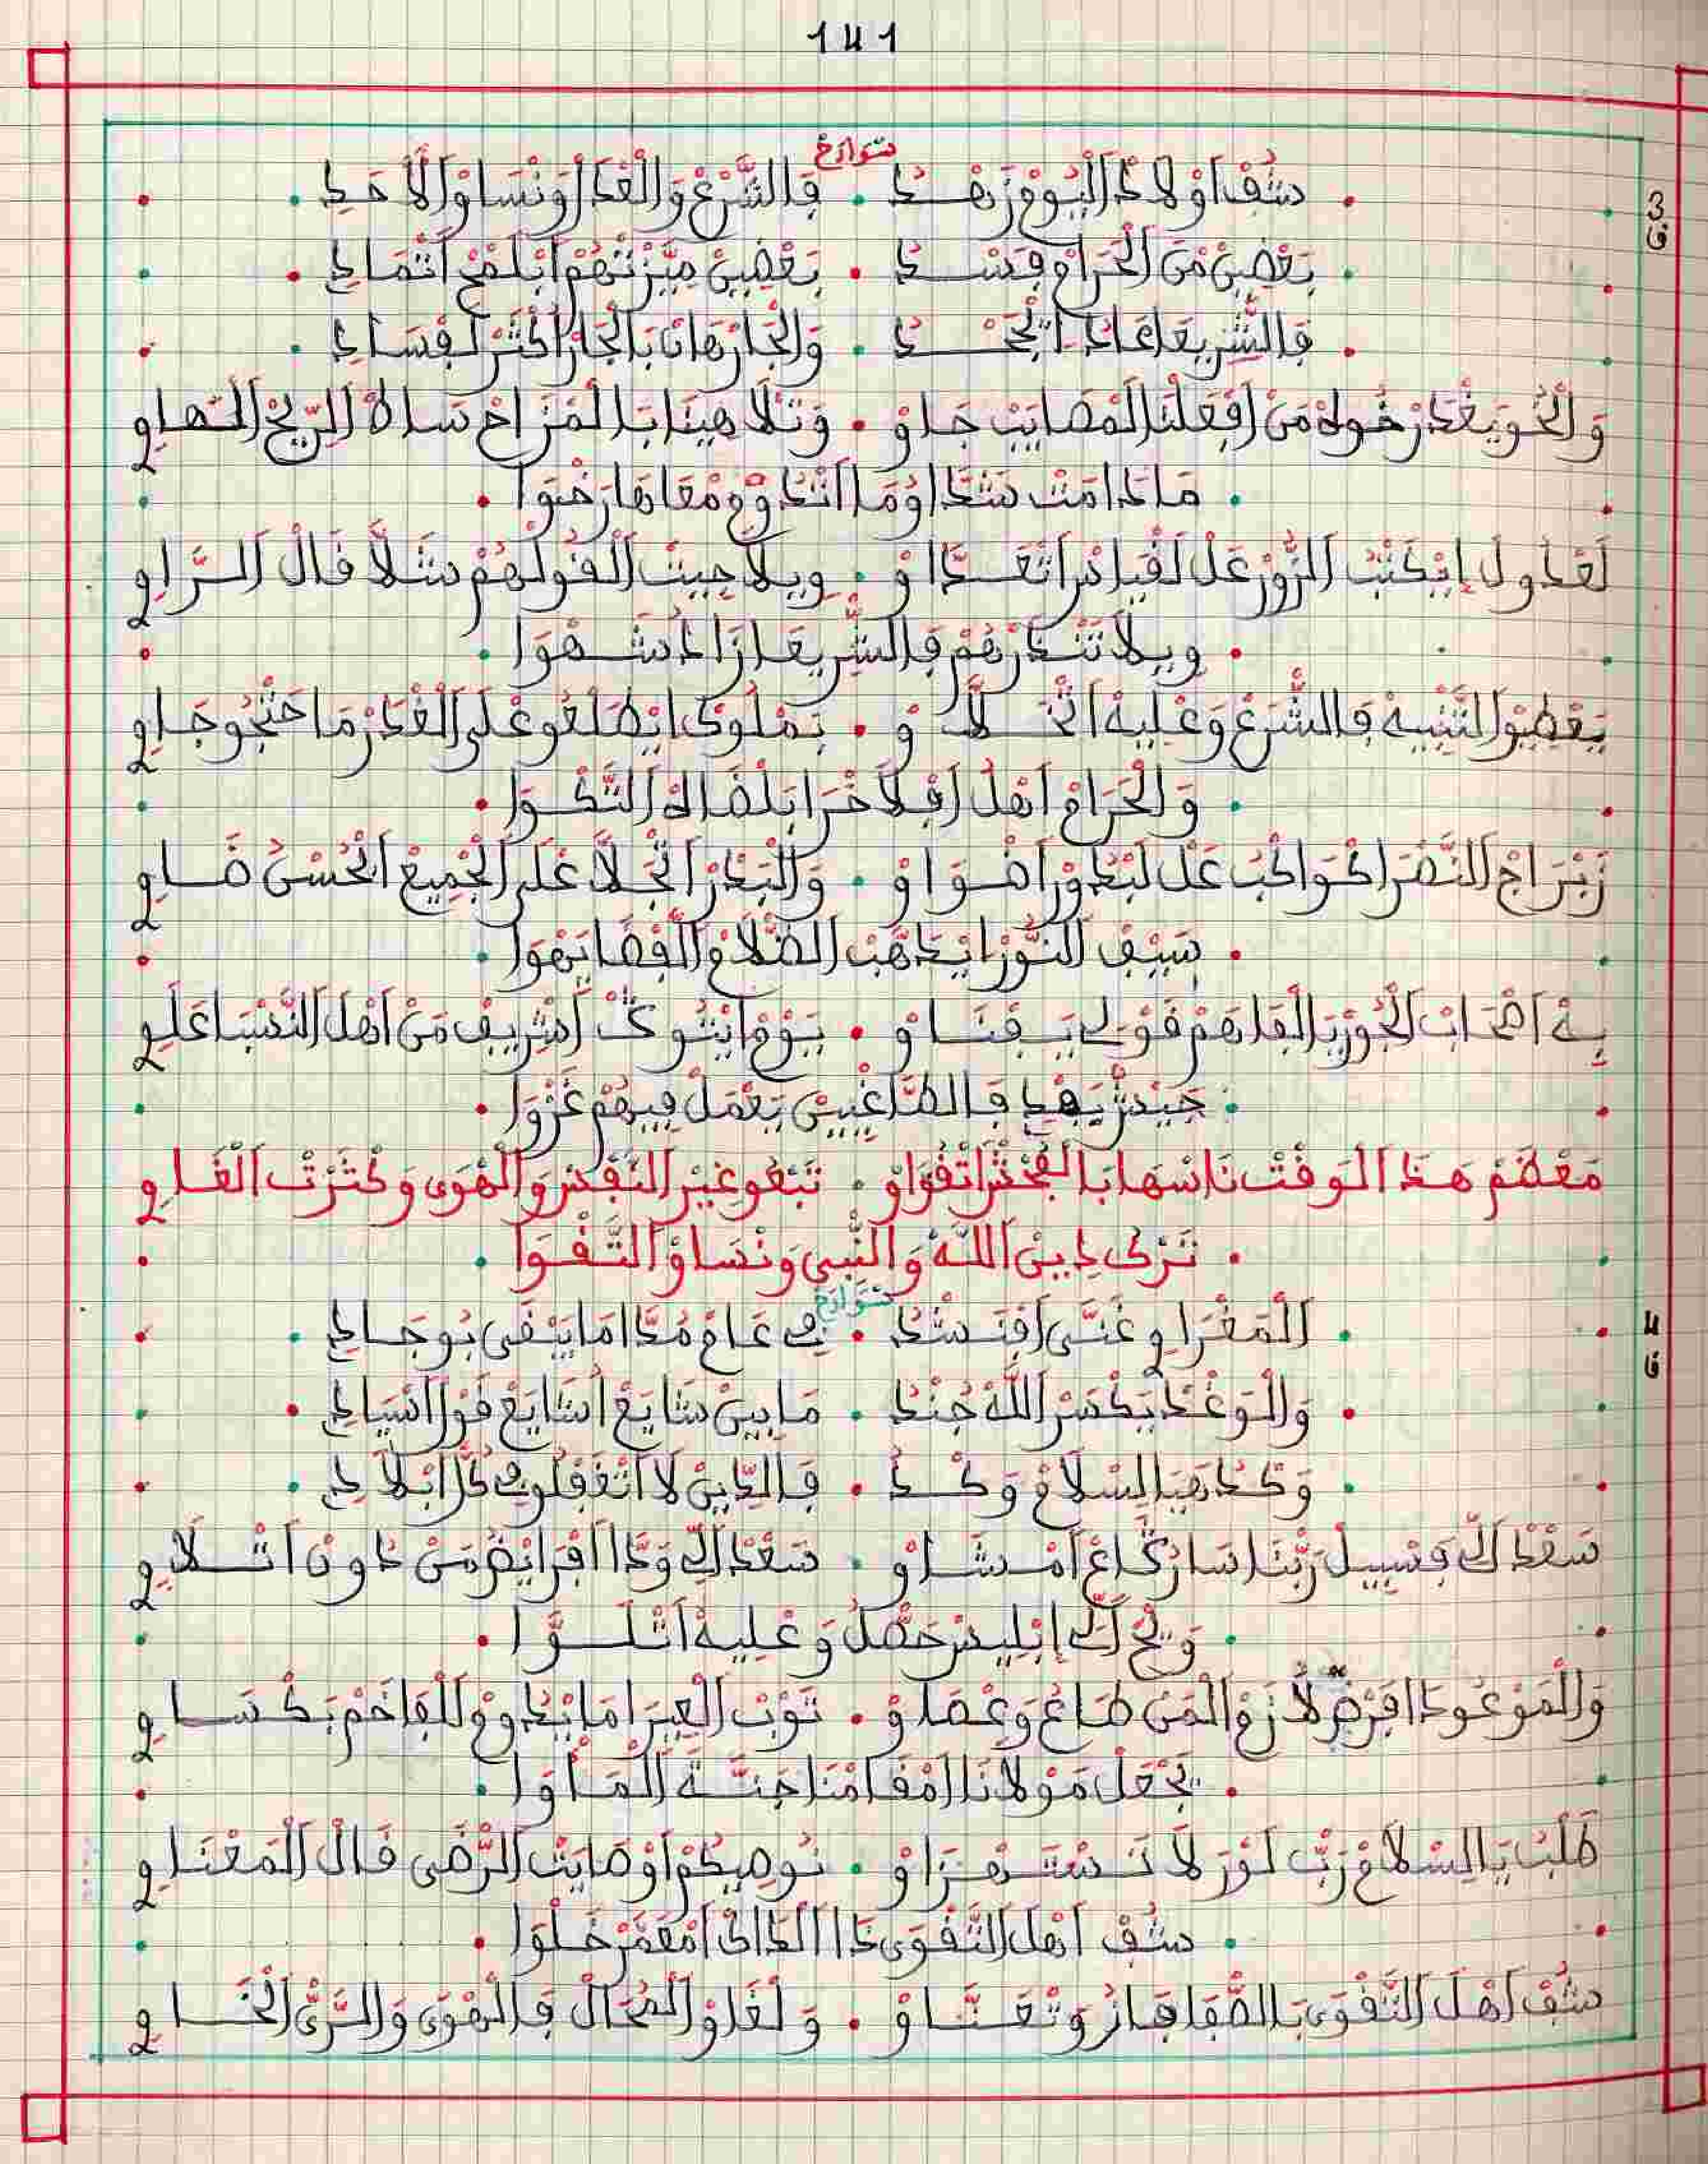 141
سْوَارَحْ
شُفْ اوْلادْ الْيُومْ زَهْدُ • فَالشَّرْعْ وَالْغَدْرْ وَنْسَاوْ الَاحَدِ
3 ف
بَعْضِينْ مَنْ الْحَرَامْ فَسْدُ • بَعْضِينْ مَيَّزْتْهُمْ ابْلَمْحْ اتْمَادِ
فَالشَّرِيعَا عَادْ اتَجَّحْدُ • وَالْجَارْ هَانْ بَالْجَارْ اكْثَرْ لَفْسَادِ
وَالْخُو يَغْدَرْ خُوهْ مَنْ افْعَلْنَا لَمْصَايَبْ جَاوْ • وَتْلَاهِينَا بَالْمْزَاحْ سَالْ الرِّيحْ الْهَاوِي
• مَادَامَتْ شَدَّا وُمَا اتْدُومْ مْعَاهَا رَخْوَا •
لَعْدُولْ إِيْكَتْبْ الزُّورْ عَلْ لَقْيَاسْ اتْعَدَّاوْ • وِيلَا جِيتْ الْقُولْهُمْ شَلَّا قَالْ الرَّاوِي
• وِيلَا تَنْدَرْهُمْ فَالشَّرِيعَا زَادْ شَهْوَا •
يَعْطِيوْ التَّنْبِيهْ فَالشَّرَعْ وَعْلِيهْ اتْخَلَّاوْ • بَمْلُوكْ ايْطَلْعُو عْلَى الْغْدَرْ مَا حَتْجُو جَاوِي
• وَالْحْرَامْ اهْلْ افْلَاخْرَا بَلْضَاهْ التَّكْوَا •
زَبْرَاجْ النَّصْرَا كْوَاكَبْ عَلْ لَبْدُورْ اضْوَاوْ • وَالْبَدْرْ اتْجَلَّا عْلَى الْجْمِيعْ الْحُسْنُ ضَاوِي
• سَيْفْ النُّورْ ايْدَهَّبْ الضْلَامْ الْقْضَا يَهْوَا •
بِهْ اصْحَابْ الْجُورْ يَا الْفَاهَمْ قَوْلِي يَفْنَاوْ • يَوْمْ ايْنُوكْ اشْرِيفْ مَنْ اهْلْ النَّسْبَا عَلَوِي
• جَيْشْ يَهْدِ فَالطَّاغِيِينْ يَعْمَلْ فِيهُمْ غَزْوَا •
مَعْضَمْ هَذَا الْوَقْتْ نَاسْهَا بَالْفُحْشْ اتْقْوَاوْ • تَبْعُو غِيْرْ النَّفْسْ وَالْهْوَى وَكْثَرْتْ الْقَاوِي
• تَرْكْ دِينْ اللَّهْ وَالنَّبِي وَنْسَاوْ التَّقْوَا •
سْوَارَحْ
الْمَغْرَاوِي غَنَّى افْنَشْدُ • فِي عَامْ مُدَّا مَا يَبْقَى بُوجَادِي
4 ف
وَالْوَغْدْ يَكْسَرْ اللَّهْ جُنْدُ • مَابِينْ شَايَعْ اشَايَعْ قَوْلْ اسْيَادِ
وَكْدْ هَبْ السْلَامْ وَكْدُ • فَالدِّينْ لَا اتْغَفْلُو فِي كُلْ ابْلَادِ
سَعْدْ الِّي فَسْبِيلْ رَبَّنَا سَارْ كَّاعْ امْشَاوْ • سَعْدْ الِّي وَدَّا افْرَايْضُ مَنْ دُونْ اتْلَاوِي
• وَيْحْ الِّي ابْلِيسْ حَصْلُ وَعْلِيهْ اتْلَوَّا •
وَالْمَوْعُودْ افْرَضْ لَازَمْ الْمَنْ طَاعْ وَعْصَاوْ • تَوْبْ الْعِيرَا مَا يْدُومْ وْ لَلْفَاخَمْ بَكْسَاوِي
• يَجْعَلْ مَوْلَانَا امْقَامْنَا جَنَّةْ الْمَاْوَا •
طَلْبُ يَا السْلَامْ رَبِّ لَوْرَ لَا نَسْتَهْزَاوْ • نُوصِيكُمْ اوْصَايَتْ الرْضَى قَالْ الْمَعْنَاوِي
• شُفْ اهْلْ التَّقْوَى دَا الدَاكْ امْعَمَّرْ خَلْوَا •
شُفْ اهْلْ التَّقْوَى بَالصَّفَا فَازُ وَتْغَنَّاوْ • وَلْغَاوْ الْمُحَالْ فَالْهْوَى وَالرَّيْ الْخَاوِي